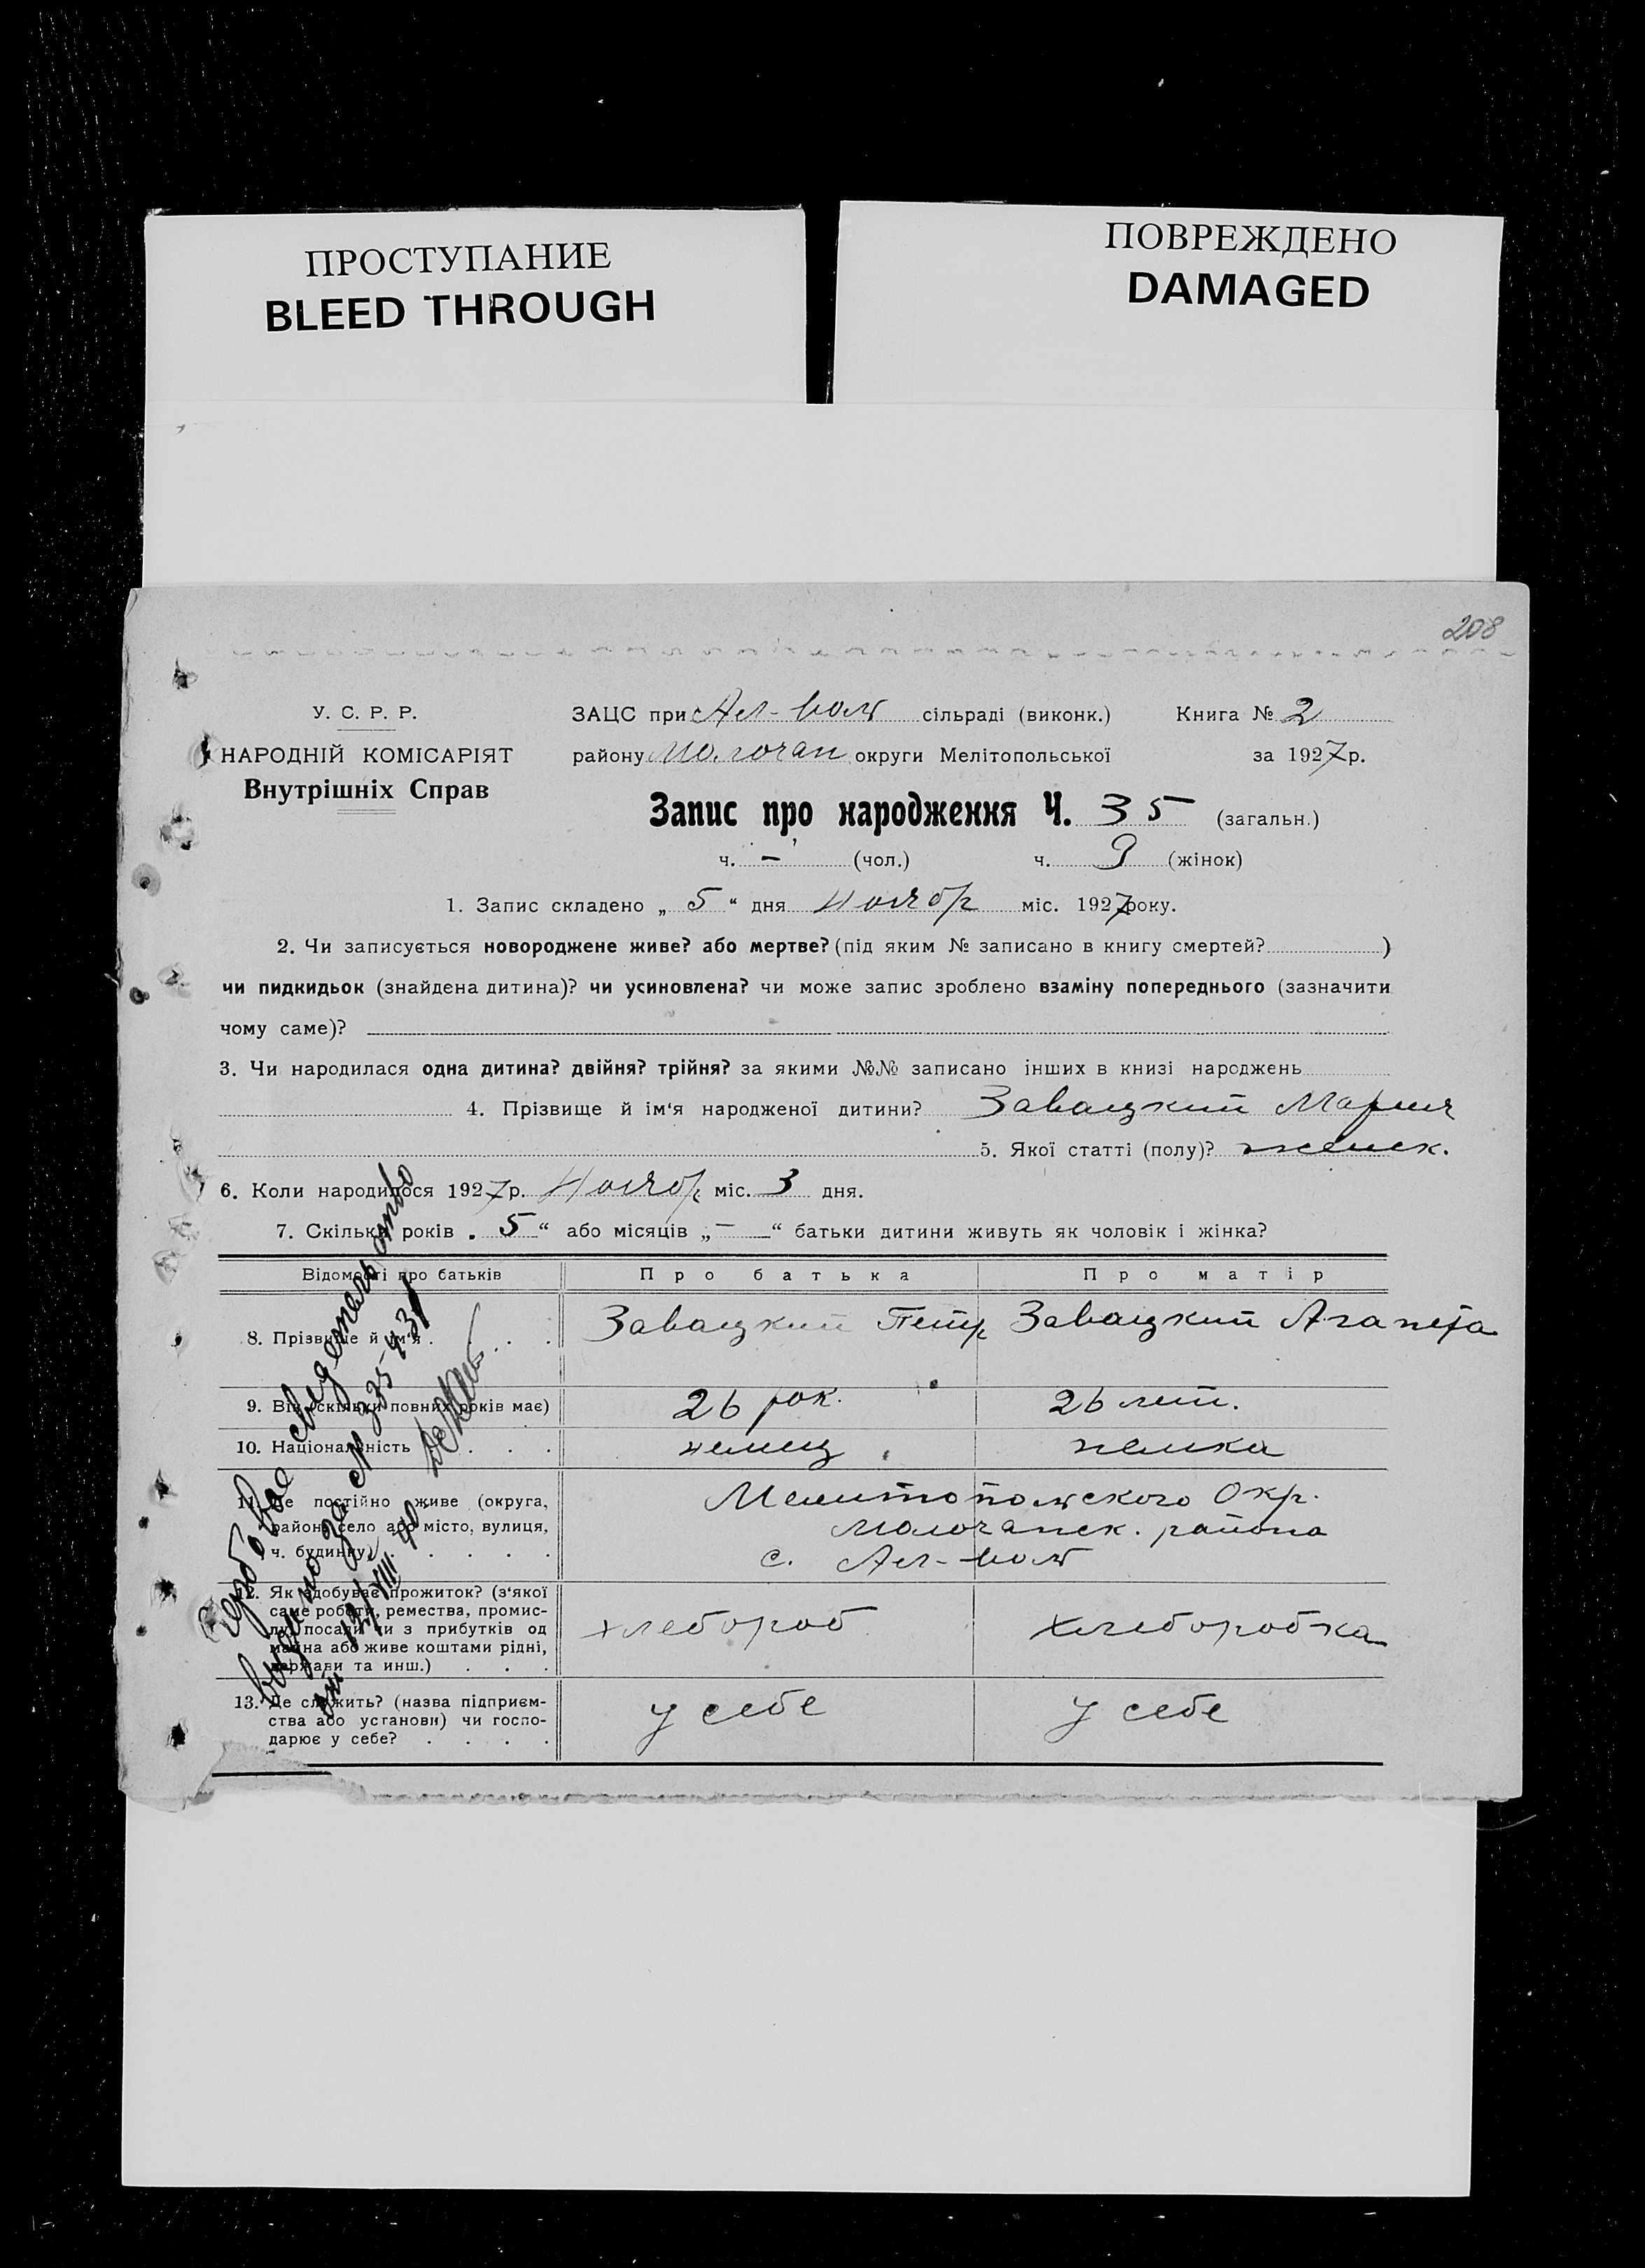 ПРОСТУПАНИЕ
BLEED THROUGH
ПОВРЕЖДЕНО
DAMAGED
208
У. С. Р. Р.
НАРОДНІЙ КОМІСАРІЯТ
Внутрішніх Справ
ЗАЦС при сільраді (виконк.) Книга № 2
району Молочан округи Мелітопольської за 1927 р.
Запис про народження Ч. 35 (загальн.)
ч. – (чол.) ч. 9 (жінок)
1. Запис складено „ 5 “ дня Ноябр міс. 1927 року.
2. Чи записується новороджене живе? або мертве? (під яким № записано в книгу смертей? )
чи пидкидьок (знайдена дитина)? чи усиновлена? чи може запис зроблено взаміну попереднього (зазначити
чому саме)?
3. Чи народилася одна дитина? двійня? трійня? за якими №№ записано інших в книзі народжень
4. Прізвище й ім‘я народженої дитини? Завацкий Мария
5. Якої статті (полу)? женск.
6. Коли народилося 1927 р. Ноябр міс. 3 дня.
7. Скільки років „ 5 “ або місяців „ – “ батьки дитини живуть як чоловік і жінка?
Відомості про батьків Про батька Про матір
8. Прізвище й ім‘я . . . . Завацкий Петр Завацкий Аганета
9. Вік (скільки повних років має) 26 рок. 26 лет.
10. Національність . . . немец немка
11. Де постійно живе (округа,
район, село або місто, вулиця,
ч. будинку) . . . . . .
Мелитопольского Окр.
Молочанск. района
с.
12. Як здобуває прожиток? (з‘якої
саме роботи, ремества, промис-
лу, посади чи з прибутків од
майна або живе коштами рідні,
держави та инш.) . . .
хлебороб хлеборобка
13. Де служить? (назва підприєм-
ства або установи) чи госпо-
дарює у себе? . . . .
у себе у себе
свидетельство
выдано за №